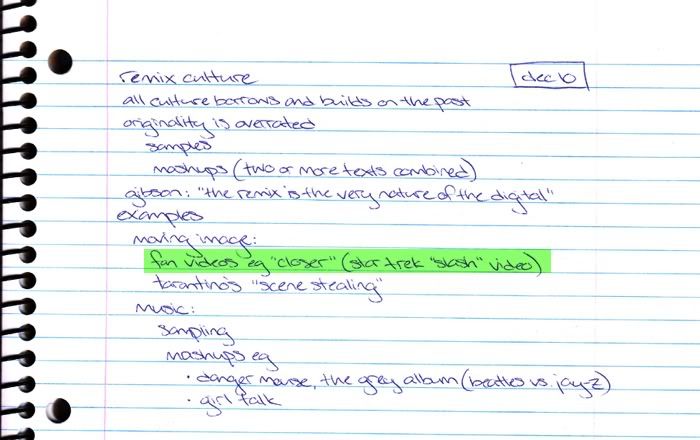 remix culture
dec 6
all culture borrows and builds on the past
originality is overrated
samples
mashups (two or more texts combined)
gibson: "the remix is the very nature of the digital"
examples
moving image:
fan videos eg "closer" (star trek "slash" video)
tarantino's "scene stealing"
music:
sampling
mashups eg
· danger mouse, the grey album (beatles vs. jay-z)
· girl talk